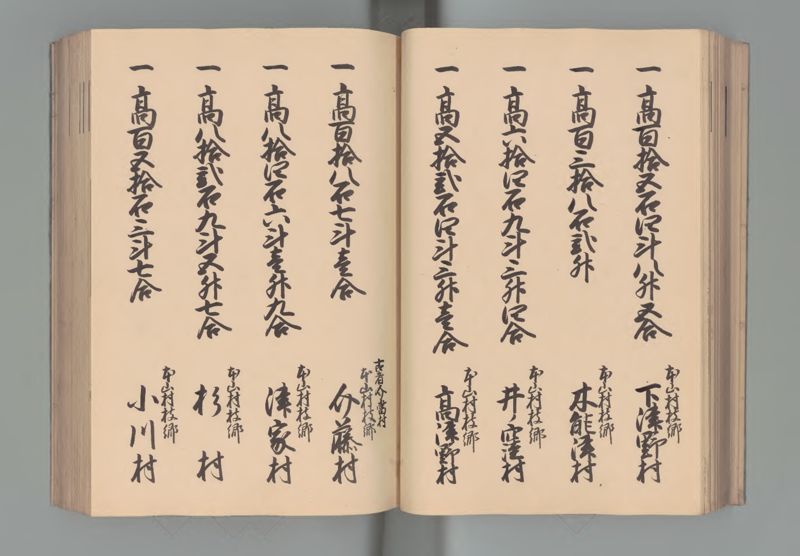 一 高百拾五石四斗八升五合
本山村枝郷
下津野村
一 高百三拾八石弐升
本山村枝郷
木能津村
一 高六拾四石九斗三升四合
本山村枝郷
井窪村
一 高五拾弐石四斗三升壱合
本山村枝郷
高津野村
一 高百拾八石七斗壱合
古者介當村
本山村枝郷
介藤村
一 高八拾四石六斗壱升九合
本山村枝郷
津家村
一 高八拾弐石九斗五升七合
本山村枝郷
杉村
一 高百五拾石三斗七合
本山村枝郷
小川村